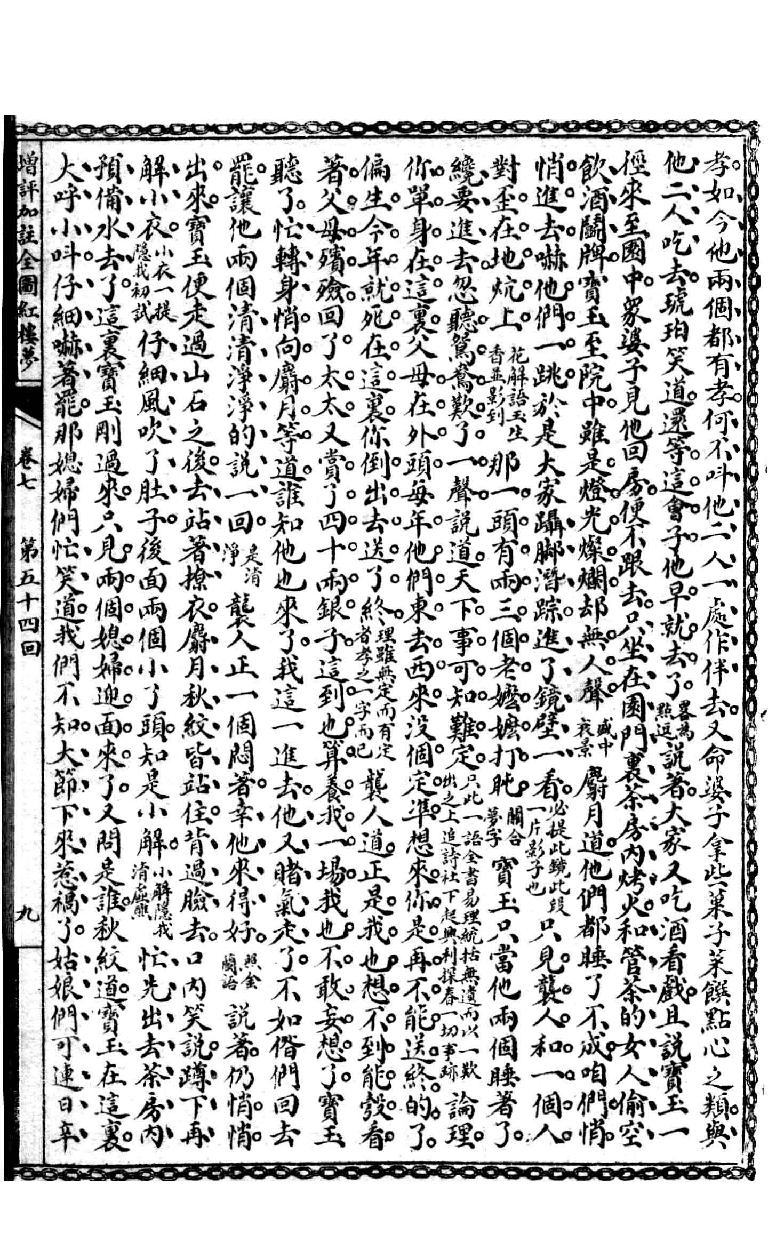 孝如今他兩個都有孝何不呌他二人一處作伴去又命婆子拿些菓子菜饌點心之類與
他二人吃去琥珀笑道還等這會子他早就去了畧為點逗說著大家又吃酒看戲且說寶玉一
徑來至園中眾婆子見他回房便不跟去只坐在園門裏茶房內烤火和管茶的女人偷空
飲酒鬪牌寶玉至院中雖是燈光燦爛却無人聲盛中夜景麝月道他們都睡了不成咱們悄
悄進去嚇他們一跳於是大家躡脚潛踪進了鏡壁一看必提此鏡此段一片影子也只見襲人和一個人
對歪在地炕上花解語玉生香並影到那一頭有兩三個老嬷嬷打盹關合夢字寶玉只當他兩個睡著了
纔要進去忽聽鴛鴦歎了一聲說道天下事可知難定只此一語全書易理統括無遺而以一歎出之上追詩社下起興利探春一切事跡論理
你單身在這裏父母在外頭每年他們東去西來没個定準想來你是再不能送終的了
偏生今年就死在這裏你倒出去送了終理雖無定而有定者孝之一字而已襲人道正是我也想不到能彀看
著父母殯殮回了太太又賞了四十兩銀子這到也算養我一場我也不敢妄想了寶玉
聽了忙轉身悄向麝月等道誰知他也來了我這一進去他又賭氣走了不如偺們回去
罷讓他兩個清清淨淨的說一回是清淨襲人正一個悶著幸他來得好照金蘭語說著仍悄悄
出來寶玉便走過山石之後去站著撩衣麝月秋紋皆站住背過臉去口內笑說蹲下再
解小衣小衣一提隱我初試仔細風吹了肚子後面兩個小了頭知是小解小解隱我清虛忙先出去茶房內
預備水去了這裏寶玉剛過來只見兩個媳婦迎面來了又問是誰秋紋道寶玉在這裏
大呼小呌仔細嚇著罷那媳婦們忙笑道我們不知大節下來惹禍了姑娘們可連日辛
增評加註全圖紅樓夢
卷七 第五十四回
九